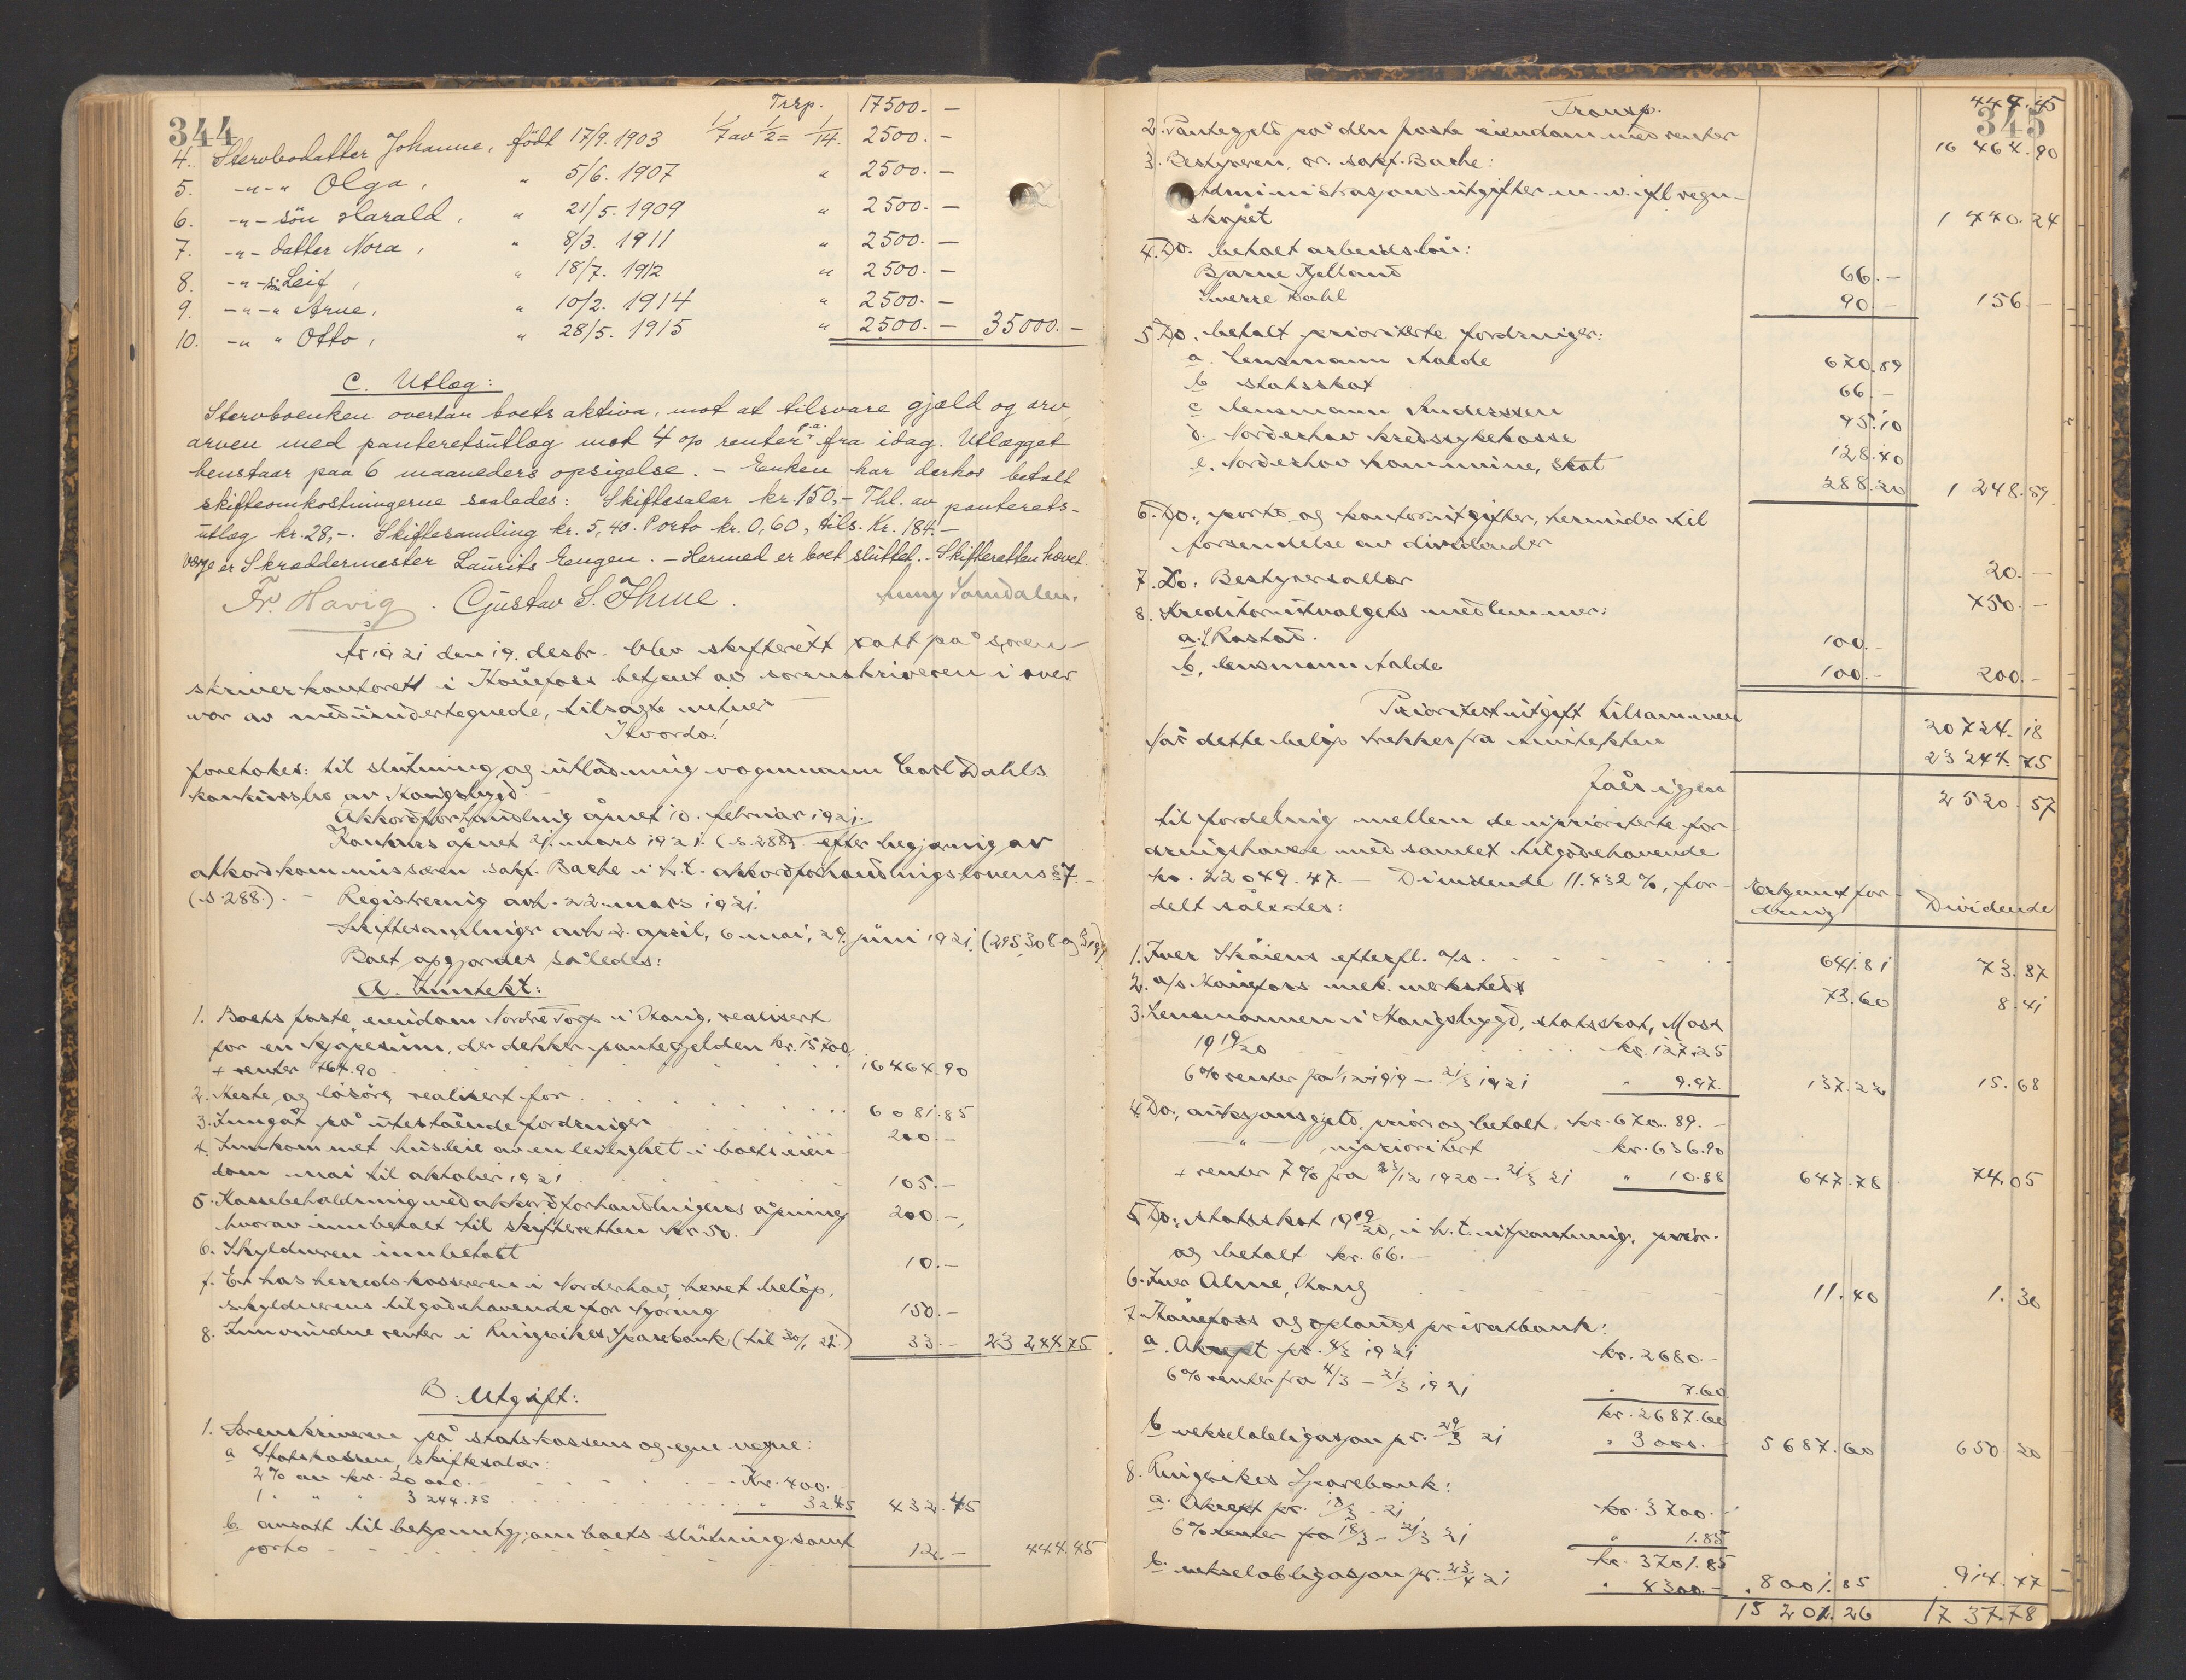 344
Trsp. 17500.-
4. Stervbodatter Johanne, født 17/9. 1903 1/7 av 1/2 = 1/14. 2500.-
5. -"-" Olga, " 5/6. 1907 " 2500.-
6. -"- sön Harald, " 21/5. 1909 " 2500.-
7. -"- datter Nora, " 8/3. 1911 " 2500.-
8. -"- sön Leif, " 18/7. 1912 " 2500.-
9. -"-" Arne, " 10/2. 1914 " 2500.-
10. -" " Otto, " 28/5. 1915 " 2500.- 35000.-
C. Utlæg:
Stervboenken overtar boets aktiva, mot at tilsvare gjæld og arv
arven med panteretsutlæg mot 4 op renter p.a. fra idag. Utlægget
henstaar paa 6 maaneders opsigelse. - Enken har derhos betalt
skifteomkostningerne saaledes: Skiftesalær kr. 150,- Thl. av panterets-
utlæg kr. 28,-. Skiftesamling kr. 5,40. Porto kr. 0,60, tils. Kr. 184.-
Verge er Skræddermester Laurits Engen. - Hermed er boet sluttet. - Skifteretten hævet.
Fr. Havig. Gjustav S. Thue. Anny Somdalen.
År 1921 den 19. desbr. blev skifterett satt på soren-
skriverkontorett i Hönefoss betjent av sorenskriveren i over
vær av medundertegnede, tilsagte vitner
Hvorda!
foretokes: til slutning og utlodning vognmann Carl Dahls
konkursbo av Haugsbygd.
Akkordforhandling åpnet 10. februar 1921.
Konkurs åpnet 21. mars 1921. (s. 288). efter begjæring av
akkordkommissæren sakf. Bache i h.t. akkordforhandlingslovens § 7.
(s. 288). - Registrering avh. 22. mars 1921.
Skiftesamlinger avh 2. april, 6. mai, 29. juni 1921. (295 308 og 319)
Boet opgjordes således:
A. Inntekt:
1. Boets faste eiendom Nordre Torp i Haug, realisert
for en kjøpesum, der dekker pantegjelden kr. 15700,
+ renter 764.90 16464.90
2. Heste og løsøre, realisert for 6081.85
3. Inngåt på utestående fordringer 200.-
4. Innkommet husleie av en leilighet i boets eien
dom mai til oktober 1921 105.-
5. Kassebeholdning ved akkordforhandlingens åpning 200.-,
hvorav innbetalt til skifteretten kr. 50.
6. Skyldneren innbetalt 10.-
7. Et hos herredskassereren i Norderhov hevet beløp,
skyldnerens tilgodehavende for kjøring 150.-
8. Innvundne renter i Ringerikes Sparebank (til 30/1 22.) 33.- 23244.75
B. Utgift:
1. Sorenskriveren på statskassens og egne vegne:
a Statskassen, skiftesalær:
2% av kr. 20000.- Kr. 400.-
1 " " " 3244.75 " 32.45 432.45
b ansatt til bekjenntgj. om boets slutning samt
porto 12.- 444.45
345
Transp. 444.45
2. Pantegjeld på den faste eiendom med renter 16464.90
3. Bestyreren, or. sakf. Bache:
Administrasjonsutgifter m.v. ifl regn-
skapet 1440.24
4. Do. betalt arbeidsløn:
Bjarne Kjelland 66.-
Sverre Dahl 90.- 156.-
5. Do. betalt prioriterte fordringer:
a. lensmann Aalde 670.89
b statsskat 66.-
c lensmann Anderssen 95.10
d. Norderhov kredssykekasse 128.40
e. Norderhov kommune, skat 288.20 1248.59
6. Do., porto og kontorutgifter, herunder til
forsendelse av dividender 20.-
7. Do. Bestyrersallær 750.-
8. Kreditorutvalgets medlemmer:
a. Rastad. 100.-
b. lensmann Aalde 100.- 200.-
Prioritetutgift tilsammen 20724.18
Når dette beløp trekkes fra inntekten 23244.75
fåes igjen 2520.57
til fordeling mellem de uprioriterte for
dringshavere med samlet tilgodehavende
kr. 22049.47. - Dividende 11.432 %, for-
delt således:
Erkjent for-
dring Dividende
1. Iver Skåiens efterfl. a/s. 641.81 73.37
2. a/s Hönefoss mek. verksted 73.60 8.41
3. Lensmannen i Haugsbygd, statsskat,
1919/20 kr. 127.25
6% renter fra 1/12 1919 - 21/3 1921 " 9.97. 137.22 15.68
4. Do., auksjonsgjeld, prior. og betalt, kr. 670.89.-
-"- uprioritert kr. 636.90
+ renter 7% fra 23/12 1920 - 21/3 21 " 10.88 647.78 74.05
5. Do., statsskat 1919/20, i h.t. utpantning, prior.
og betalt kr. 66.-
6. Iver Alme, Haug 11.40 1.30
7. Hönefoss og oplands privatbank:
a. Aksept pr. 4/3 1921 kr. 2680.-
6% renter fra 4/3 - 21/3 1921 " 7.60
kr. 2687.60
b vekselobligasjon pr. 29/3 21 " 3000.- 5687.60 650.20
8. Ringerikes Sparebank:
a. Aksept pr. 18/3 - 21 kr. 3700.-
6% renter fra 18/3 - 21/3 21 " 1.85
kr. 3701.85
b. vekselobligasjon pr. 23/4 21 " 4300.- 8001.85 914.77
15201.26 1737.78